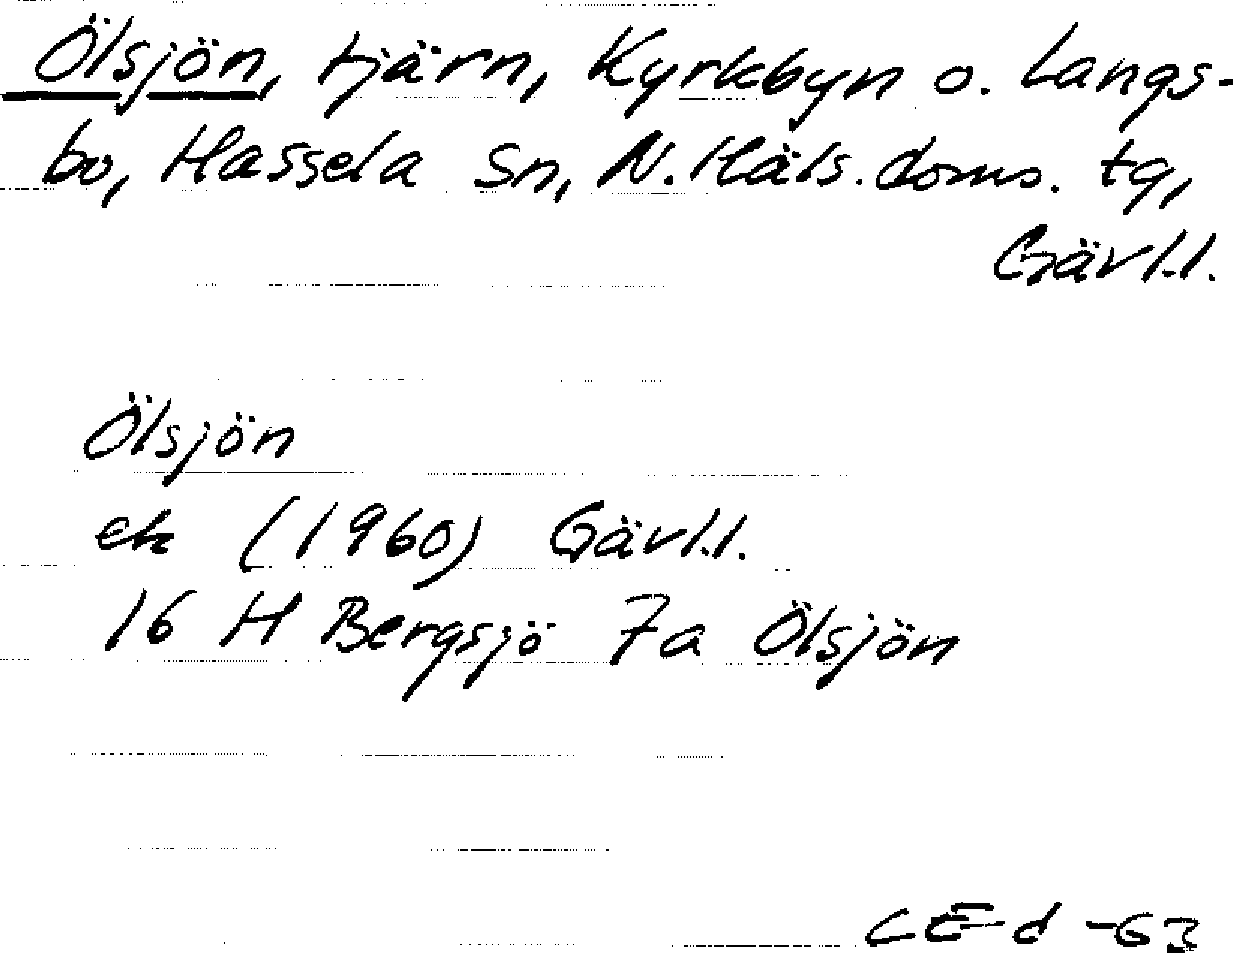 Ölsjön, tjärn, Kyrkbyn o. Langs-
bo, Hassela Sn, N. Häls. doms. tg,
Gävl.l.
Ölsjön
ek (1960) Gävl.l.
16 H Bergsjö 7a Ölsjön
CE-d -63